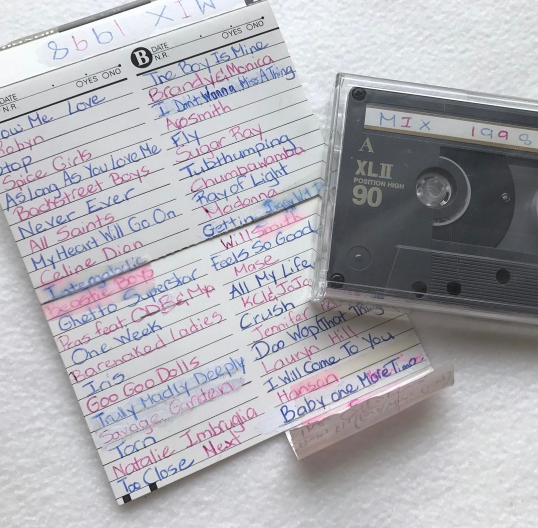 MIX 1998
DATE
N.R.
OYES ONO
how Me Love
Robyn
Stop
Spice Girls
As Long As You Love Me
Backstreet Boys
Never Ever
All Saints
My Heart Will Go On
Celine Dian
Intergalactic
Beastie Boys
Ghetto Superstar
Pras feat. ODB & Mya
One Week
Barenaked Ladies
Iris
Goo Goo Dolls
Truly Madly Deeply
Savage Garden
Torn
Natalie Imbruglia
Too Close Next
B DATE
N.R.
OYES ONO
The Boy Is Mine
Brandy & Monica
I Don't Wanna Miss A Thing
Aerosmith
Fly
Sugar Ray
Tubthumping
Chumbawamba
Ray of Light
Madonna
Gettin
Will
Feels So Good
Mase
All My Life
K-Ci & JoJo
Crush
Jennifer
Doo Wop (That Thing
Lauryn Hill
I Will Come To You
Hanson
Baby One More Time
MIX 1998
A
XLII
POSITION HIGH
90